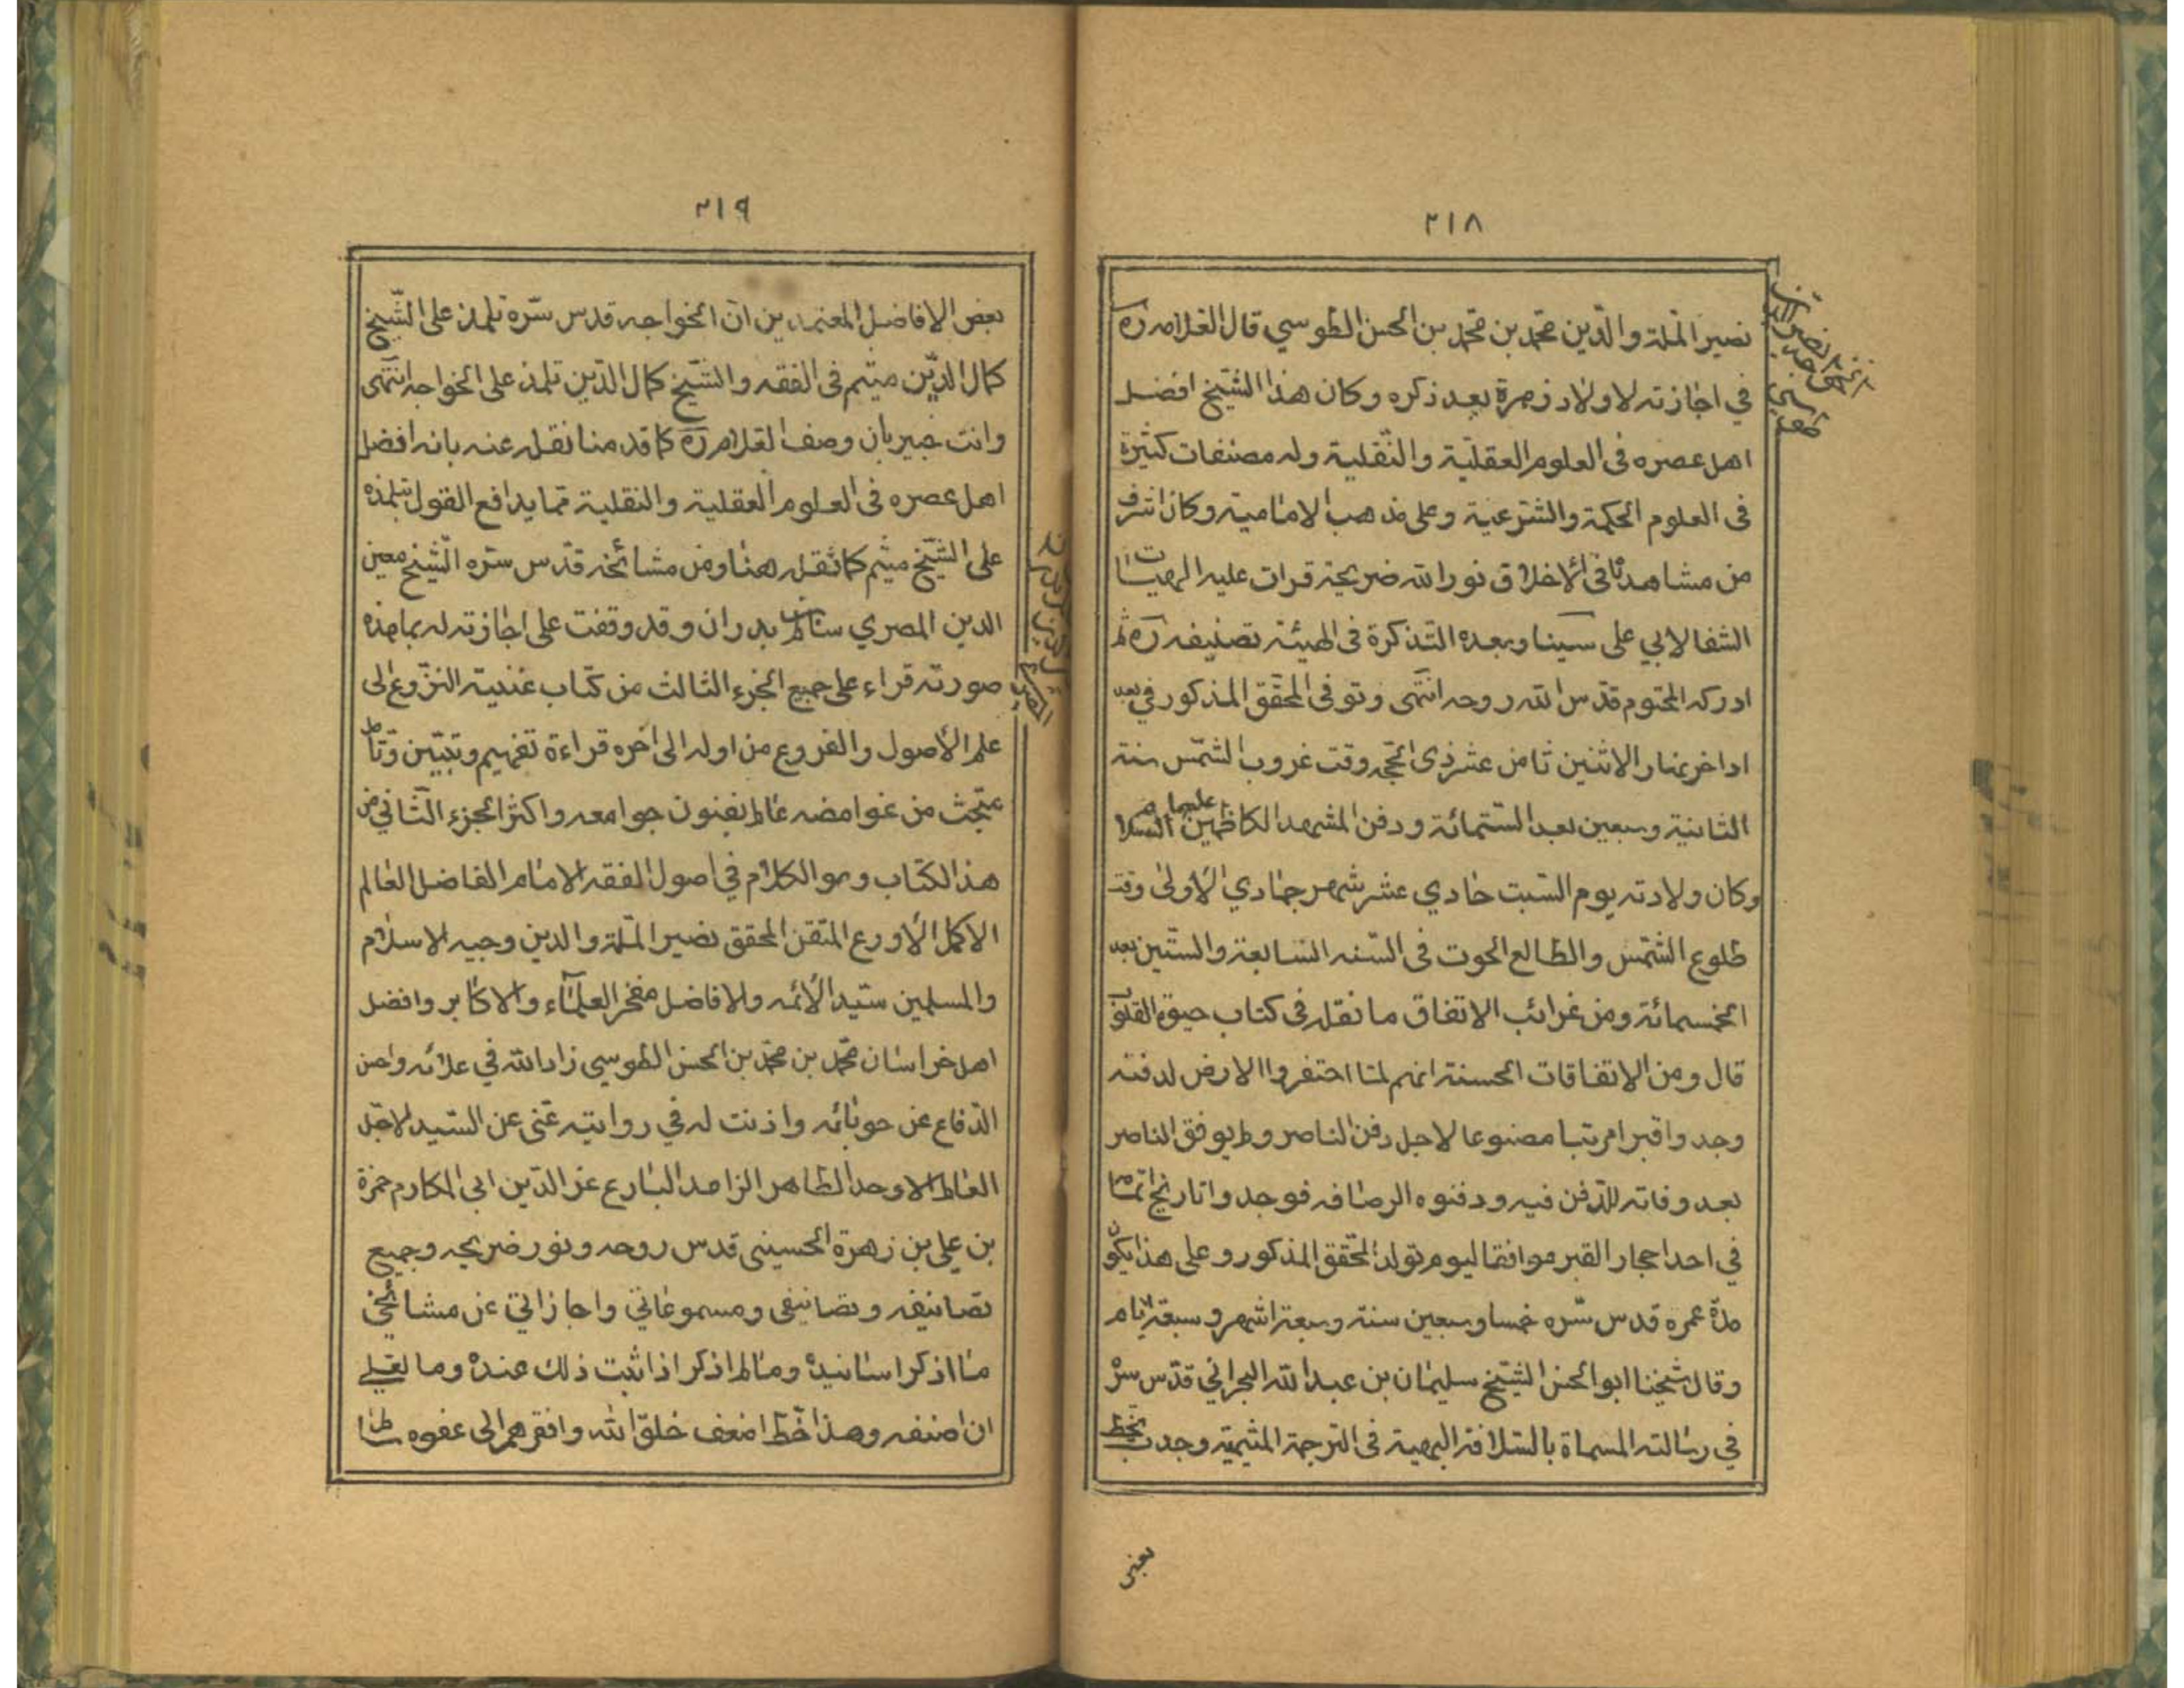 ٢١٨
نصير الملة والدّين محمّد بن محمّد بن الحسن الطوسي قال العلامه ره
في اجازته لاولاد زهرة بعد ذكره وكان هذا الشيخ افضل
اهل عصره فى العلوم العقليّة والنّقلية وله مصنفات كثيرة
فى العلوم الحكمية والشرعية وعلى مذهب الامامية وكان اشرف
من مشاهدناه فى الاخلاق نور الله ضريحه قرات عليه الهيات
الشفا لابي على سينا وبعده التذكرة فى الهيئة تصنيفه ره ثم
ادركه المحتوم قدّس الله روحه انتهى وتوفى المحقق المذكور في بعد
اداخر نهار الاثنين ثامن عشر ذى الحجه وقت غروب الشمس سنة
الثانية وسبعين بعد الستمائة ودفن المشهد الكاظمين عليهما السلام
وكان ولادته يوم السّبت حادي عشر شهر جمادي الاولى وقت
طلوع الشّمس والطالع الحوت فى السّنه السابعة والستّين بعد
الخمسمائة ومن غرائب الاتفاق ما نقله فى كتاب حيوة القلوب
قال ومن الاتفاقات الحسنة انهم لمّا احتفروا الارض لدفنه
وجدوا قبرا مرتبا مصنوعا لاجل دفن الناصر ولم يوفق الناصر
بعد وفاته للدّفن فيه ودفنوه الرصافه فوجدوا تاريخ اتمامه
في احد احجار القبر موافقا ليوم تولد المحقّق المذكور وعلى هذا يكون
مدّة عمره قدس سّره خمسا وسبعين سنة وسبعة اشهر وسبعة ايام
وقال شيخنا ابو الحسن الشيخ سليمان بن عبد الله البحراني قدّس سرّه
في رسالته المسماة بالسّلافة البهية فى الترجمة الميثمية وجدت بخط
بعض
الخواجه نصير الدين
طوسي
٢١٩
بعض الافاضل المعتمدين ان الخواجه قدس سّره تلمذ على الشّيخ
كمال الدّين ميثم فى الفقه والشّيخ كمال الدّين تلمذ على الخواجه انتهى
وانت خبير بان وصف العلامه ره كما قدمنا نقله عنه بانه افضل
اهل عصره فى العلوم العقلية والنقلية ممّا يدافع القول بتلمذه
على الشيّخ ميثم كما نقله هنا ومن مشائخه قدّس سرّه الشّيخ معين
الدين المصري سالم بن بدران وقد وقفت على اجازته له بما هذه
صورته قراء على جميع الجزء الثالث من كتاب غنية النزوع الى
علم الأصول والفروع من اوله الى اخره قراءة تفهيم وتبيّن وتامل
متبحث من غوامضه عالم بفنون جوامعه واكثر الجزء الثاني من
هذا الكتاب وهو الكلام في اصول الفقه الامام الفاضل العالم
الاكمل الأورع المتقن المحقق نصير الملّة والدين وجيه الاسلام
والمسلمين سيّد الأئمه والافاضل مفخر العلمآء والاكابر وافضل
اهل خراسان محمّد بن محمّد بن الحسن الطوسي زاد الله في علائه واحسن
الدّفاع عن حوبائه واذنت له في روايته عنّى عن السّيد لاجل
العالم الاوحد الطاهر الزاهد البارع عز الدّين ابى المكارم حمزة
بن علي بن زهرة الحسينى قدس روحه ونور ضريحه وجميع
تصانيفه وتصانيفى ومسموعاتي واجازاتي عن مشائخي
ما اذكر اسانيده وما لم اذكر اذا ثبت ذلك عنده وما لعلي
ان اصنفه وهذا خّط اضعف خلق الله وافقرهم الى عفوه سالم